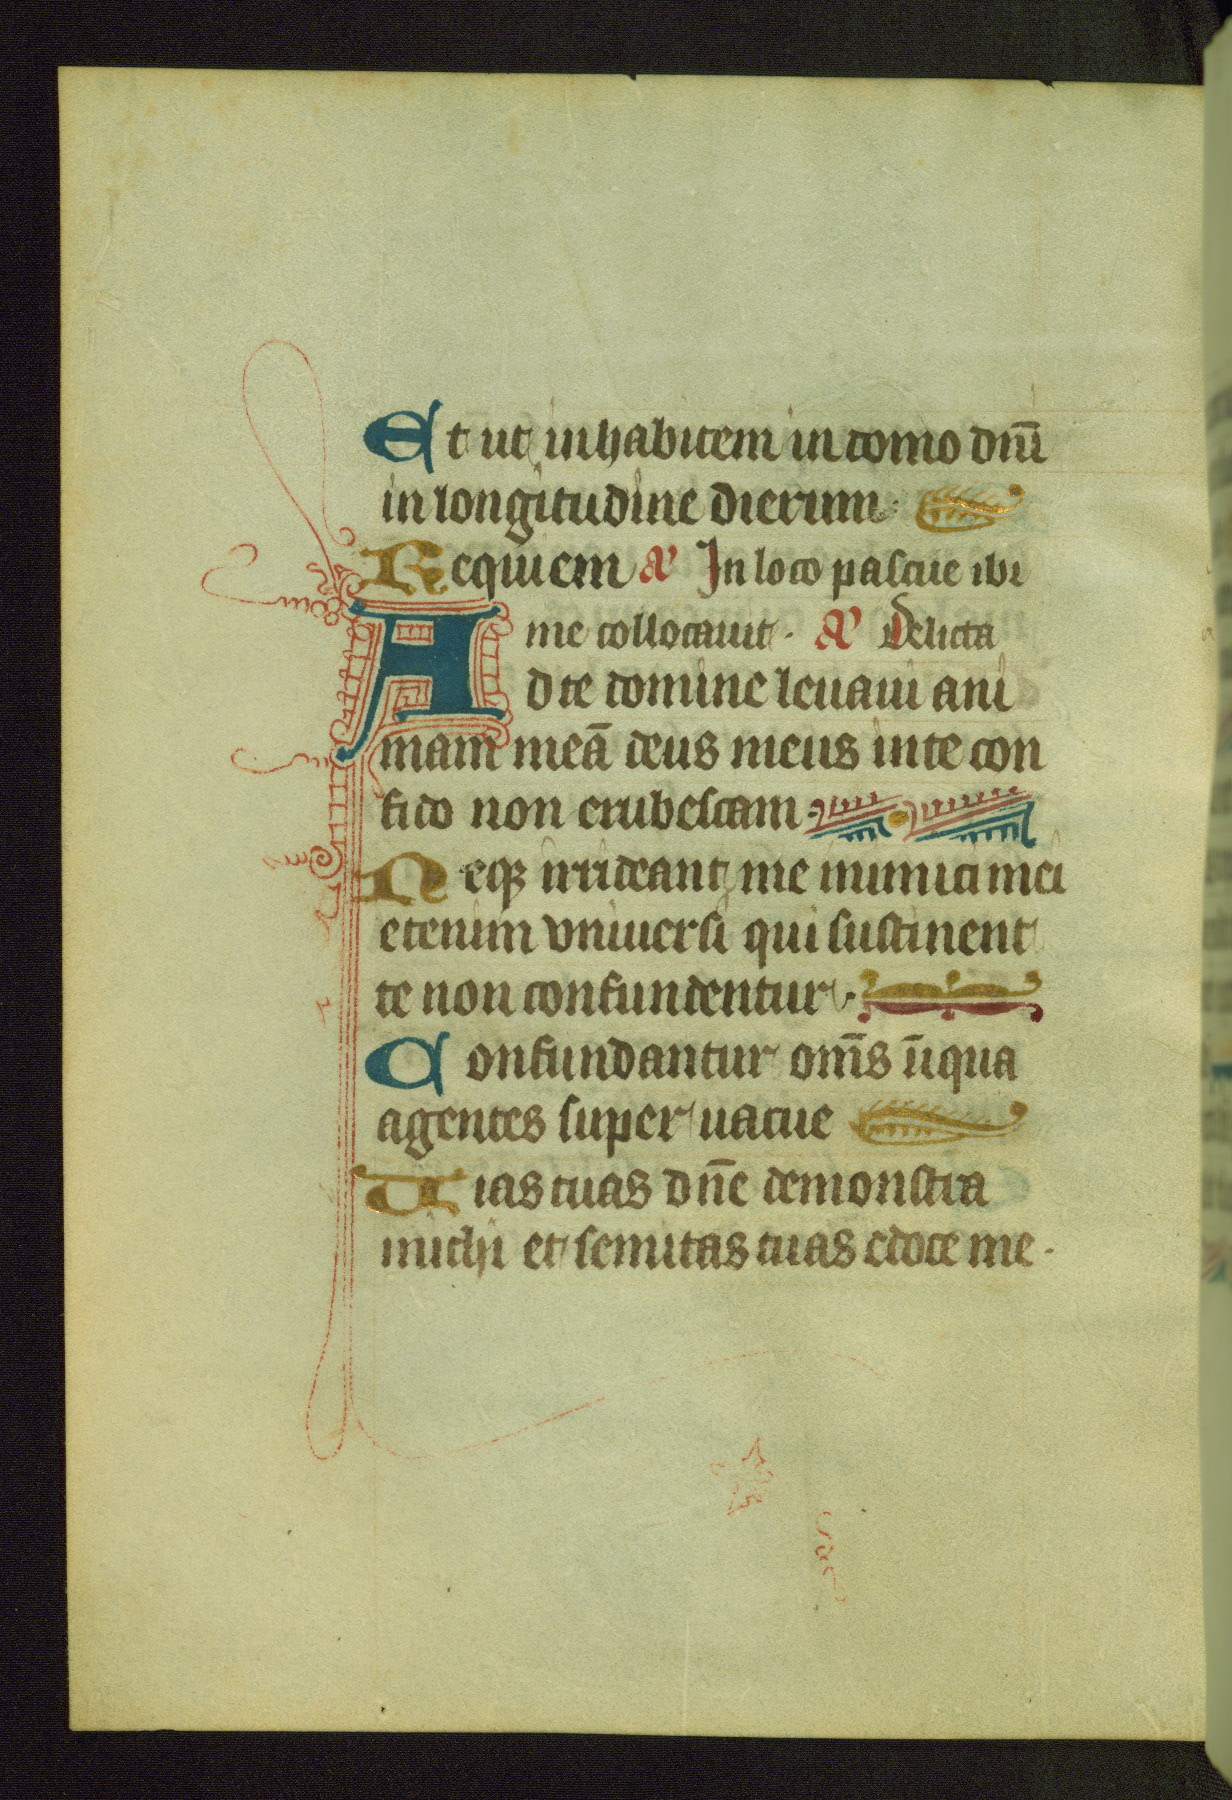 Et ut inhabitem in domo dnī
in longitudine dierum
Requiem A In loco pascue ibi
me collocauit · A Delicta
Ad te domine leuaui ani
mam meā deus meus in te con
fido non erubescam ·
Neqꝫ irrideant me inimici mei
etenim vniuersi qui sustinent
te non confundentur ·
Confundantur om̄s īiqua
agentes super uacue
Uias tuas dn̄e demonstra
michi et semitas tuas edoce me ·